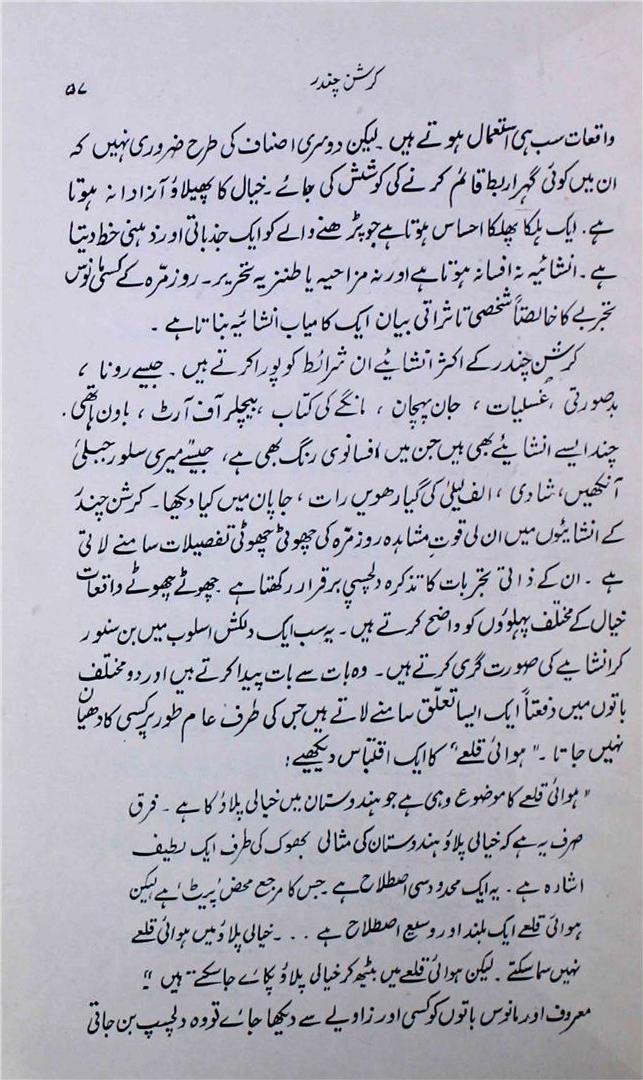 کرشن چندر
۵۷
واقعات سب ہی استعمال ہوتے ہیں ۔ لیکن دوسری اصناف کی طرح ضروری نہیں کہ
ان میں کوئی گہرا ربط قائم کرنے کی کوشش کی جائے ۔ خیال کا پھیلاؤ آزادانہ ہوتا
ہے ۔ ایک ہلکا پھلکا احساس ہوتا ہے جو پڑھنے والے کو ایک جذباتی اور ذہنی حظ دیتا
ہے ۔ انشائیہ نہ افسانہ ہوتا ہے اور نہ مزاحیہ یا طنزیہ تحریر ۔ روزمرّہ کے کسی مانوس
تجربے کا خالصتاً شخصی تاثراتی بیان ایک کامیاب انشائیہ بناتا ہے ۔
کرشن چندر کے اکثر انشائیے ان شرائط کو پورا کرتے ہیں ۔ جیسے رونا ،
بدصورتی ، غسلیات ، جان پہچان ، مانگے کی کتاب ، بیچلر آف آرٹ ، باون ہاتھی ۔
چند ایسے انشائیے بھی ہیں جن میں افسانوی رنگ بھی ہے ، جیسے میری سلور جبلی
آنکھیں ، شادی ، الف لیلیٰ کی گیارھویں رات ، جاپان میں کیا دیکھا ۔ کرشن چندر
کے انشائیوں میں ان کی قوتِ مشاہدہ روزمرّہ کی چھوٹی چھوٹی تفصیلات سامنے لاتی
ہے ۔ ان کے ذاتی تجربات کا تذکرہ دلچسپی برقرار رکھتا ہے ۔ چھوٹے چھوٹے واقعات
خیال کے مختلف پہلوؤں کو واضح کرتے ہیں ۔ یہ سب ایک دلکش اسلوب میں بن سنور
کر انشایے کی صورت گری کرتے ہیں ۔ وہ بات سے بات پیدا کرتے ہیں اور دو مختلف
باتوں میں دفعتاً ایک ایسا تعلّق سامنے لاتے ہیں جس کی طرف عام طور پر کسی کا دھیان
نہیں جاتا ۔ "ہوائی قلعے" کا ایک اقتباس دیکھیے :
"ہوائی قلعے کا موضوع وہی ہے جو ہندوستان میں خیالی پلاؤ کا ہے ۔ فرق
صرف یہ ہے کہ خیالی پلاؤ ہندستان کی مثالی بھوک کی طرف ایک لطیف
اشارہ ہے ۔ یہ ایک محدود سی اصطلاح ہے جس کا مرجع محض 'پیٹ' ہے لیکن
ہوائی قلعے ایک بلند اور وسیع اصطلاح ہے . . . ۔ خیالی پلاؤ میں ہوائی قلعے
نہیں سما سکتے ۔ لیکن ہوائی قلعے میں بیٹھ کر خیالی پلاؤ پکائے جا سکتے ہیں "
معروف اور مانوس باتوں کو کسی اور زاویے سے دیکھا جائے تو وہ دلچسپ بن جاتی